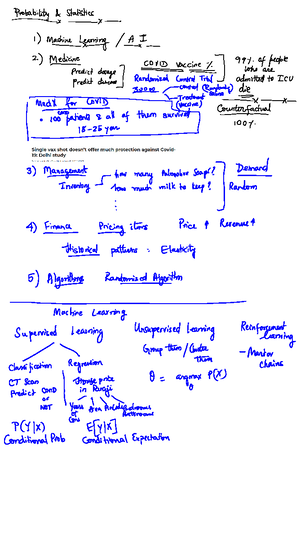 Probability & Statistics
1) Machine Learning / A I
2.) Medicine
Predict dosage
Predict disease
COVID Vaccine %
Randomized Control Trial
control (Placebo)
Treatment (vaccine)
99% of people who are admitted to ICU die
Counterfactual
100%
Med X for COVID
100 patients & all of them survived
18-25 year
Single vax shot doesn't offer much protection against Covid-
19: Delhi study
3) Management
Inventory
how many Palmolive Soaps?
how much milk to keep?
Demand
Random
4) Finance Pricing items Price ↑ Revenue ↑
Historical patterns : Elasticity
5) Algorithms Randomised Algorithm
Machine Learning
Supervised Learning
Unsupervised Learning
Reinforcement Learning
Classification
Regression
Group them / Cluster them
- Markov Chains
CT Scan
Predict COVID or NOT
House price in
θ = argmax P(X)
θ
Years of
Area
Bedrooms
P(Y|X)
Conditional Prob
E[Y|X]
Conditional Expectation